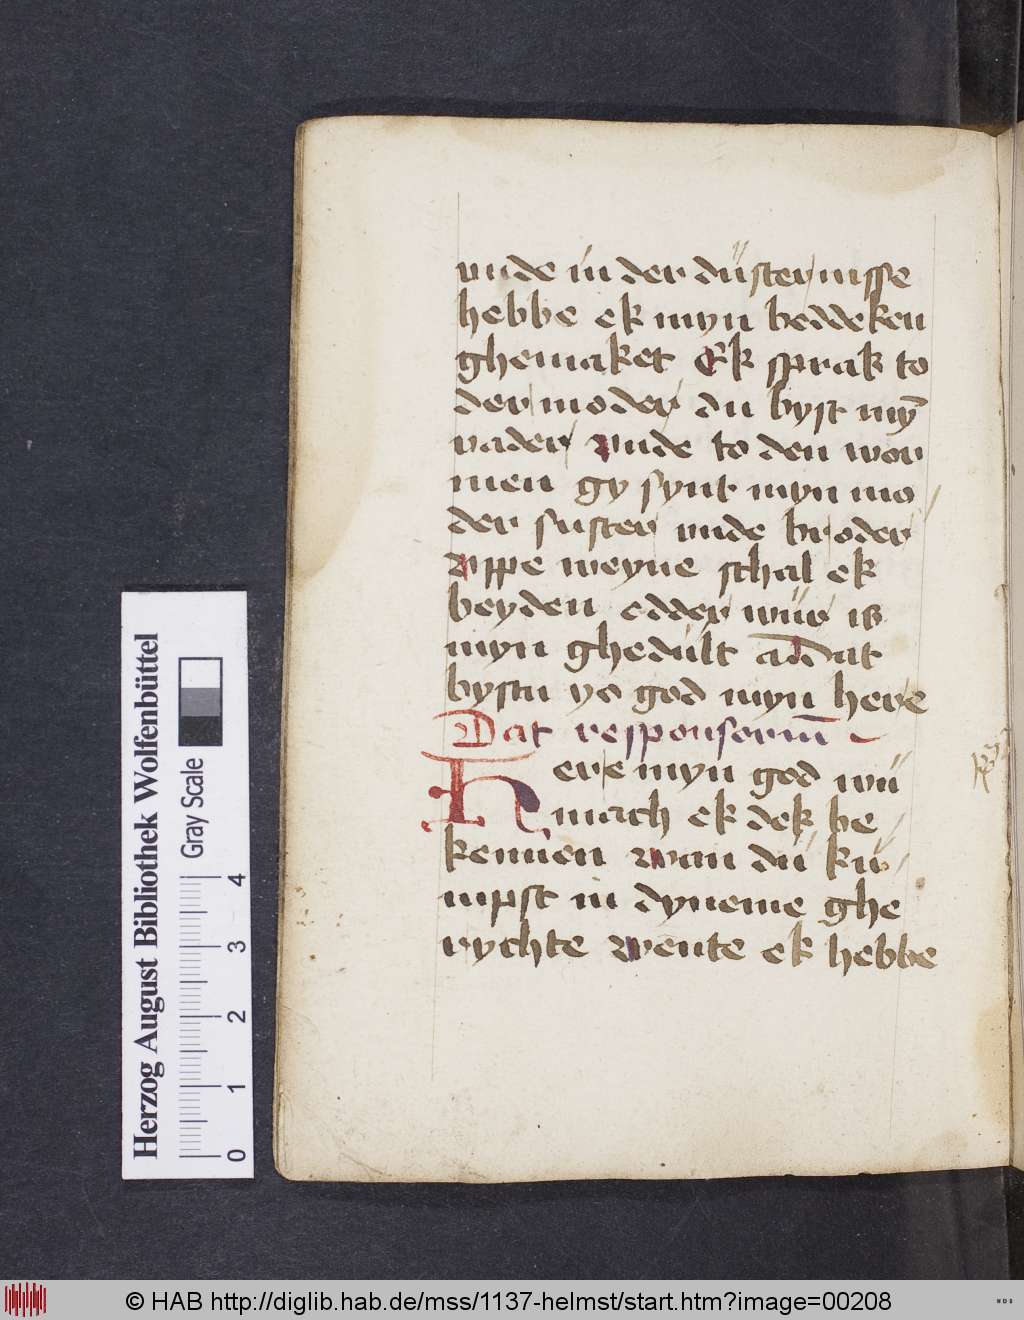 vnde in der düsternisse
hebbe ek myn beddeken
ghemaket Ek sprak to
der moder du byst mȳ
vader vnde to den wor
men gy synt myn mo
der suster vnde broder
vppe weyne schal ek
beyden edder wür is
myn ghedült
bystu yo god myn here
Dat responsoriū
Here myn god wü
mach ek dek be
kennen wan dü kü
mpst in dyneme ghe
rychte wente ek hebbe
Herzog August Bibliothek Wolfenbüttel
Gray Scale
0 1 2 3 4
© HAB http://diglib.hab.de/mss/1137-helmst/start.htm?image=00208